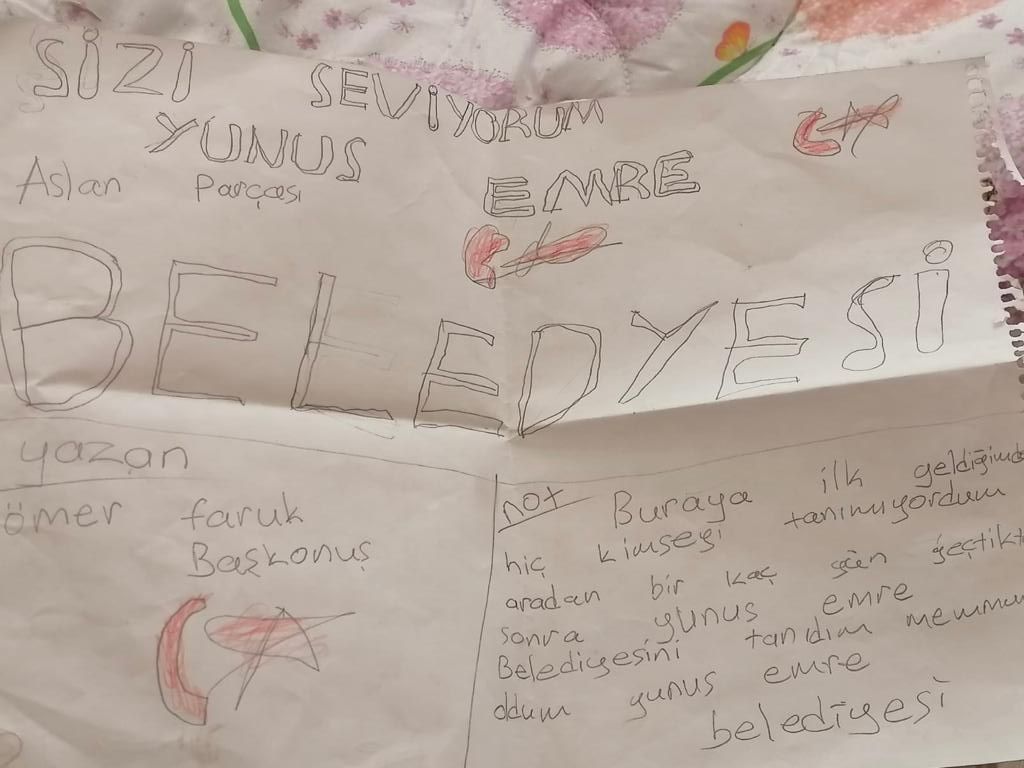 SİZİ SEVİYORUM
YUNUS EMRE
Aslan Parçası
BELEDYESİ
yazan
ömer faruk
Başkonuş
not Buraya ilk geldiğimde
hiç kimseyi tanımıyordum
aradan bir kaç gün geçtikt
sonra yunus emre
Belediyesini tanıdım memnun
oldum yunus emre
belediyesi